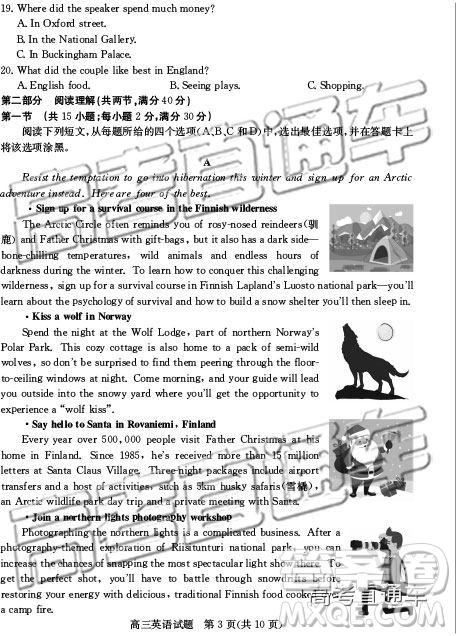 19. Where did the speaker spend much money?
A. In Oxford street.
B. In the National Gallery.
C. In Buckingham Palace.
20. What did the couple like best in England?
A. English food. B. Seeing plays. C. Shopping.
第二部分 阅读理解(共两节,满分40分)
第一节 (共15小题;每小题2分,满分30分)
阅读下列短文,从每题所给的四个选项(A、B、C和D)中,选出最佳选项,并在答题卡上
将该选项涂黑。
A
Resist the temptation to go into hibernation this winter and sign up for an Arctic
adventure instead. Here are four of the best.
· Sign up for a survival course in the Finnish wilderness
The Arctic Circle often reminds you of rosy-nosed reindeers(驯
鹿) and Father Christmas with gift-bags, but it also has a dark side—
bone-chilling temperatures, wild animals and endless hours of
darkness during the winter. To learn how to conquer this challenging
wilderness, sign up for a survival course in Finnish Lapland's Luosto national park—you'll
learn about the psychology of survival and how to build a snow shelter you'll then sleep in.
· Kiss a wolf in Norway
Spend the night at the Wolf Lodge, part of northern Norway's
Polar Park. This cozy cottage is also home to a pack of semi-wild
wolves, so don't be surprised to find them peering through the floor-
to-ceiling windows at night. Come morning, and your guide will lead
you outside into the snowy yard where you'll get the opportunity to
experience a “wolf kiss”.
· Say hello to Santa in Rovaniemi, Finland
Every year over 500,000 people visit Father Christmas at his
home in Finland. Since 1985, he's received more than 15 million
letters at Santa Claus Village. Three-night packages include airport
transfers and a host of activities, such as 5km husky safaris(雪橇),
an Arctic wildlife park day trip and a private meeting with Santa.
· Join a northern lights photography workshop
Photographing the northern lights is a complicated business. After a
photography-themed exploration of Riisitunturi national park, you can
increase the chances of snapping the most spectacular light show there. To
get the perfect shot, you'll have to battle through snowdrifts before
restoring your energy with delicious, traditional Finnish food cooked over
a camp fire.
高考直通车
高三英语试题 第3页(共10页)